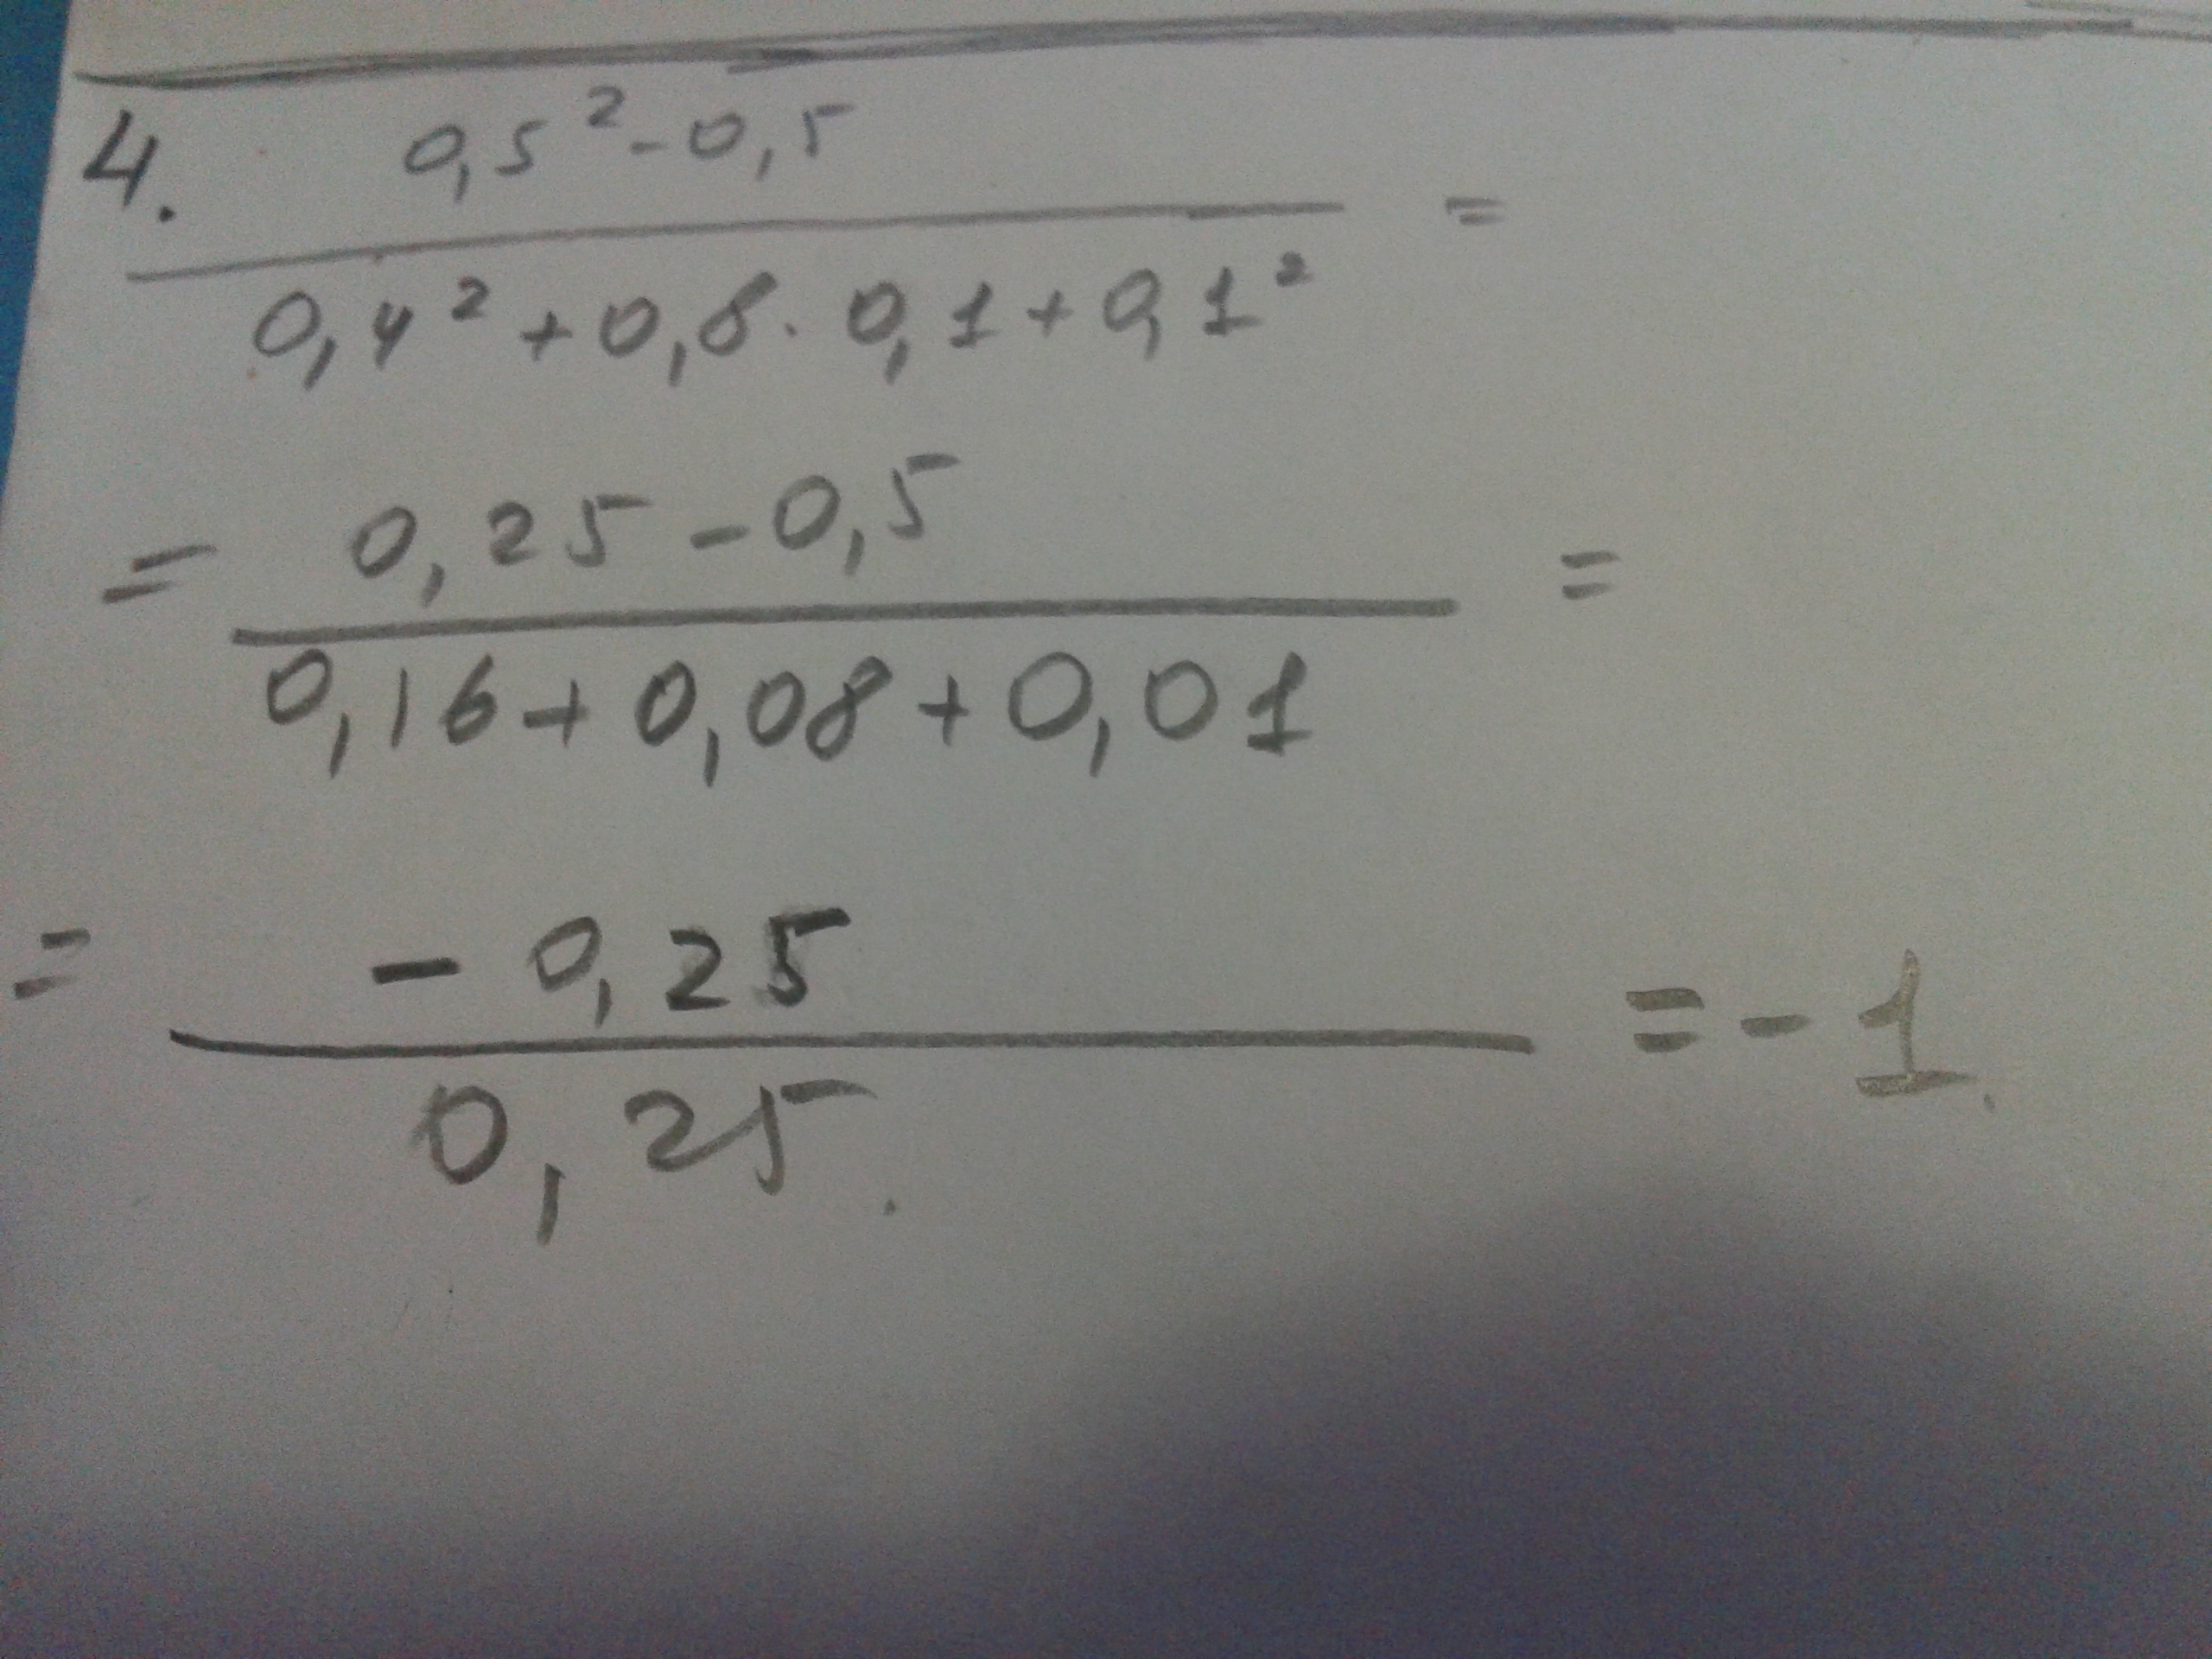 4. 0,5² - 0,5
=
0,4² + 0,8 · 0,1 + 0,1²
0,25 - 0,5
= =
0,16 + 0,08 + 0,01
- 0,25
= = - 1.
0,25.